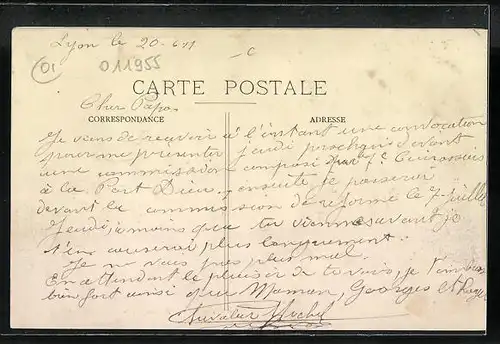 Lyon le 20-6-11
011955
CARTE POSTALE
CORRESPONDANCE ADRESSE
Cher Papa
Je viens de recevoir à l'instant une convocation
pour me présenter jeudi prochain devant
une commission composé 7e Cuirassiers
à la Part Dieu, ensuite je passerai
devant la commission de réforme le 7 juillet
Jeudi, à moins que tu viennes avant je
t'en causerai plus longuement.
Je ne vais pas plus mal.
En attendant le plaisir de te voir, je t'embrasse
bien fort ainsi que Maman, Georges et